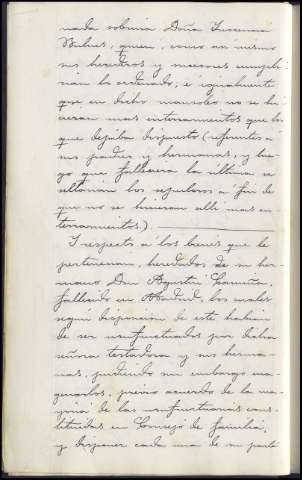 nada sobrina Doña Turcensa
que, como asi mismo
sus herederos y sucesores cumpli-
rian lo ordenado, é igualmente
que en dicho mausoleo no se hi-
cieran mas enterramientos que los
que dejaba dispuesto (referentes á
sus padres y hermanas, y lue-
go que falleciera la última se
sellarian los sepulcros á fin de
que no se hicieran alli mas en-
terramientos.)
Y respecto á los bienes que le
pertenecian, heredados de su her-
mano Don Agustin
fallecido en Madrid, los cuales
según disposicion de este habian
de ser usufructuados por dicha
señora testadora y sus herma-
nas, pudiendo sin embargo ena-
genarlos, previo acuerdo de la ma-
yoria de las usufructuarias cons-
tituidas en Consejo de familia,
y disponer cada una de su parte